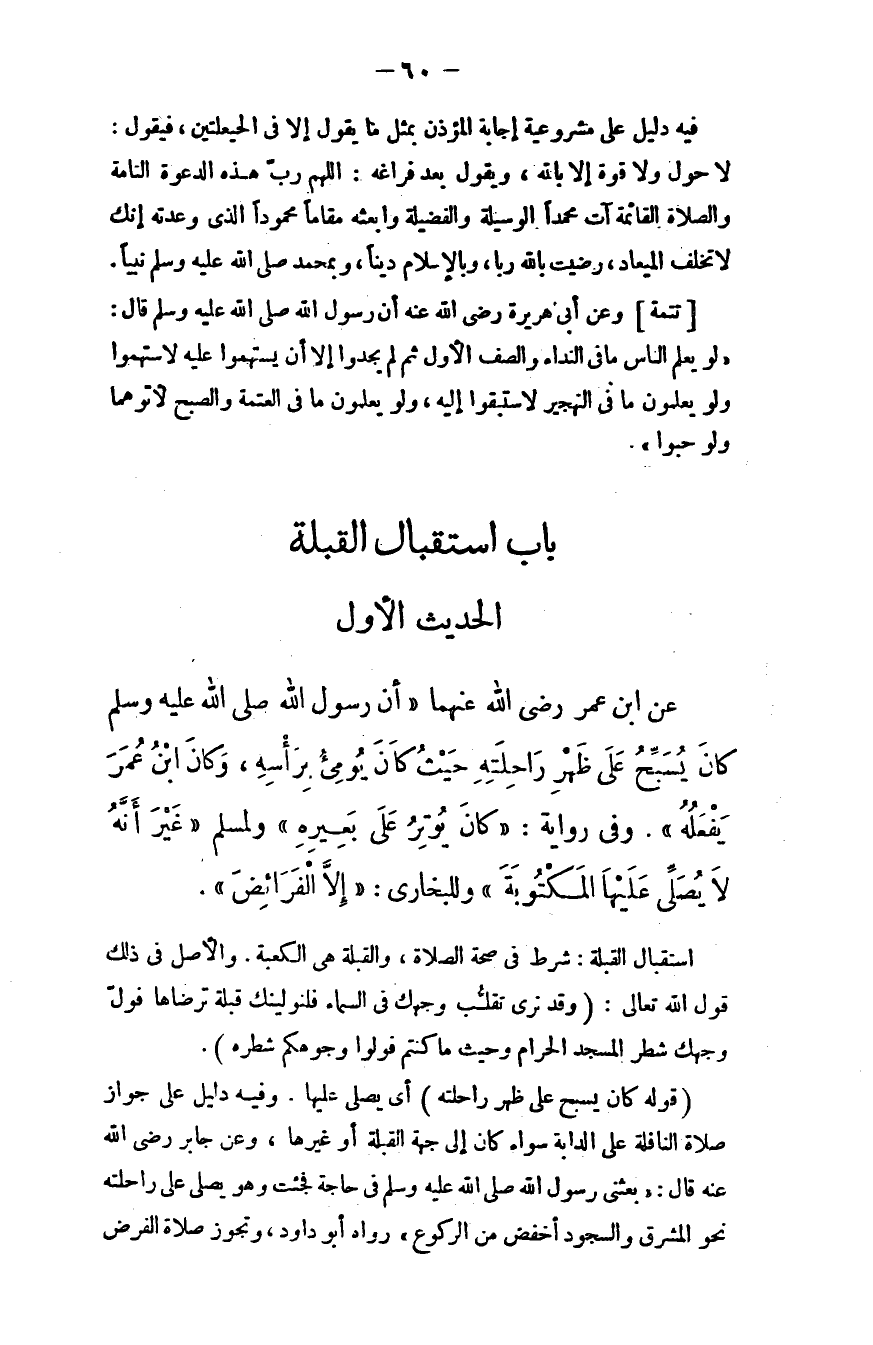 — ٦٠ —
فيه دليل على مشروعية إجابة المؤذن بمثل ما يقول إلا فى الحيعلتين ، فيقول :
لا حول ولا قوة إلا بالله ، ويقول بعد فراغه : اللهم ربّ هذه الدعوة التامة
والصلاة القائمة آت محمداً الوسيلة والفضيلة وابعثه مقاماً محموداً الذى وعدته إنك
لا تخلف الميعاد ، رضيت بالله ربا ، وبالإسلام ديناً ، وبمحمد صلى الله عليه وسلم نبياً .
[ تتمة ] وعن أبى هريرة رضى الله عنه أن رسول الله صلى الله عليه وسلم قال :
« لو يعلم الناس ما فى النداء والصف الأول ثم لم يجدوا إلا أن يستهموا عليه لاستهموا
ولو يعلمون ما فى التهجير لاستبقوا إليه ، ولو يعلمون ما فى العتمة والصبح لأتوهما
ولو حبوا » .
باب استقبال القبلة
الحديث الأول
عن ابن عمر رضى الله عنهما « أن رسول الله صلى الله عليه وسلم
كَانَ يُسَبِّحُ عَلَى ظَهْرِ رَاحِلَتِهِ حَيْثُ كَانَ يُومِئُ بِرَأْسِهِ ، وَكَانَ ابْنُ عُمَرَ
يَفْعَلُهُ » . وفى رواية : « كَانَ يُوتِرُ عَلَى بَعِيرِهِ » ولمسلم « غَيْرَ أَنَّهُ
لاَ يُصَلِّى عَلَيْهَا المَكْتُوبَةَ » وللبخارى : « إِلاَّ الْفَرَائِضَ » .
استقبال القبلة : شرط فى صحة الصلاة ، والقبلة هى الكعبة . والأصل فى ذلك
قول الله تعالى : ( وقد نرى تقلُّب وجهك فى السماء فلنولينك قبلة ترضاها فولّ
وجهك شطر المسجد الحرام وحيث ما كنتم فولوا وجوهكم شطره ) .
( قوله كان يسبح على ظهر راحلته ) أى يصلى عليها . وفيه دليل على جواز
صلاة النافلة على الدابة سواء كان إلى جهة القبلة أو غيرها ، وعن جابر رضى الله
عنه قال : « بعثنى رسول الله صلى الله عليه وسلم فى حاجة فجئت وهو يصلى على راحلته
نحو المشرق والسجود أخفض من الركوع » رواه أبو داود ، وتجوز صلاة الفرض